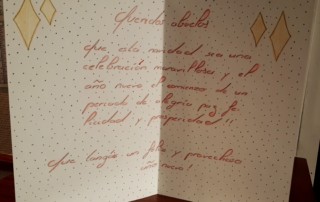 Queridos abuelos
Que esta navidad sea una
celebración maravillosa y el
año nuevo el comienzo de un
periodo de alegría paz fe
licidad y prosperidad!!
Que tengáis un feliz y provechoso
año nuevo!